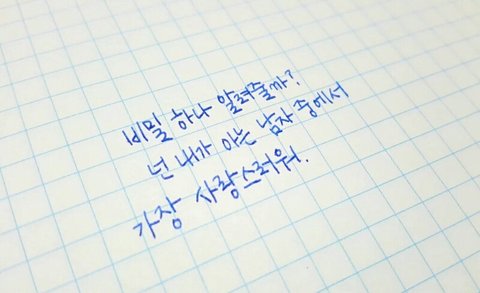 비밀 하나 알려줄까?
넌 내가 아는 남자 중에서
가장 사랑스러워.